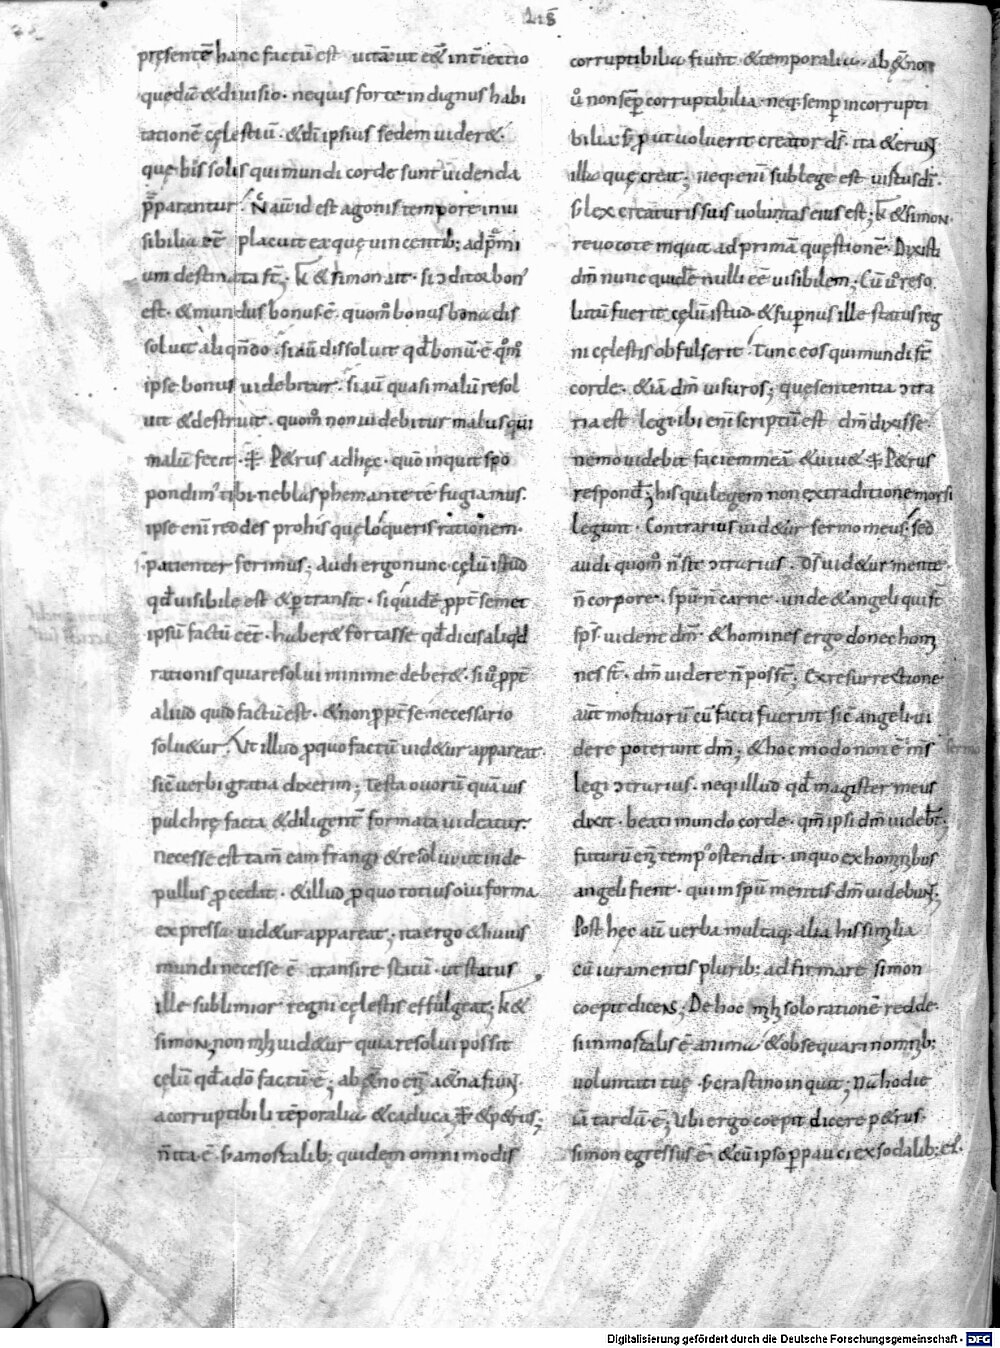 218
pręsentē hanc factū est uitā ut eēt int̄iectio
quędā &diuisio· nequis forte indignus habi
tationē cęlestiū · &di ipsius sedem uider&·
quę his solis qui mundi corde sunt uidenda
pparantur· N̄c aūt id est agonis tempore inui
sibilia eē placuit ea quę uincentib; ad pmi
um destinata st̄· Et simon ait· si ɔditor bon'
est· & mundus bonus·ē· quom̊ bonus bona dis
soluit aliqn̄do · si aū dissoluit qd̄ bonū·ē· qm̊
ipse bonus uidebitur· si aū quasi malū resol
uit & destruit· quom̊ non uidebitur malus qui
malū fecit · P&rus ad hęc · quō inquit spo
pondim' tibi neblasphemante tē fugiamus·
ipse enī reddes pro his quę loqueris rationem·
patienter ferimus; Audi ergo nunc cęlū istud
qd̄ uisibile est & ptransit· siquidē ppt̄ semet
ipsū factū eēt· haber& fortasse qd̄ dicis aliqd̄
rationis quia resolui minime deber&· si ů ppt̄
aliud quid factū est· & non ppt̄ se necessario
solu&ur· Ut illud pquo factū uid&ur appareat·
sic̄ uerbi gratia dixerim; Testa ouorū quāuis
pulchrę facta & diligent̄ formata uideatur·
necesse est tam̄ eam frangi & resolui ut inde
pullus pcedat · & illud pquo totius oui forma
expressa uid&ur appareat; ita ergo & huius
mundi necesse ē transire statū· ut status
ille sublimior regni cęlestis effulgeat; &
simon; non mihi uid&ur quia resolui possit
cęlū qd̄ a dō factū·ē; ab &no enī &na fiunt·
a corruptibili tēporalia & caduca, & p&rus;
n̄ ita·ē· s; a mortalib; quidem omnimodis
corruptibilia fiunt· & temporalia· ab &no
ů non semp corruptibilia· neq; semp incorrupti
bilia· s; put uoluerit creator ds̄· ita & erunt
illa quę creat; neq; enī sub lege est uirtus di·
s; lex creaturis suis uoluntas eius est; & simon·
reuoco te inquit ad primā quęstionē· Dixisti
dm̄ nunc quidē nulli eē uisibilem; Cū ů reso
lutū fuerit cęlū istud· & supnus ille status reg
ni cęlestis obfulserit· Tunc eos qui mundi st̄
corde· &iā dm̄ uisuros; quę sententia ɔtra
ria est legi· ibi enī scriptū est dm̄ dixisse·
nemo uidebit faciem meā & uiu& P&rus
respond&; his qui legem non ex traditione mosi
legunt· Contrarius uid&ur sermo meus· sed
audi quom̊ n̄ sit ɔtrarius· Ds̄ uid&ur mente·
n̄ corpore· spū n̄ carne· unde & angeli qui st̄
sps̄ uident dm̄· & homines ergo donec homi
nes st̄· dm̄ uidere n̄ posst̄; Ex resurrectione
aūt mortuorū cū facti fuerint sic̄ angeli· ui
dere poterunt dm̄; & hoc modo non·ē· m̄s sermo
legi ɔtrarius· neq; illud qd̄ magister meus
dixit· beati mundo corde· qm̄ ipsi dm̄ uidebt̄·
futurū enī temp' ostendit· in quo ex hominibus
angeli fient· qui in spū mentis dm̄ uidebunt;
Post hęc aū uerba multaq; alia his similia
cū iuramentis plurib; adfirmare simon
coepit dicens; De hoc mihi solo rationē redde·
si inmortalis·ē· anima & obsequar in omnib;
uoluntati tuę s; crastino inquit; Nā hodie
iā tardū·ē; Ubi ergo coepit dicere p&rus·
simon egressus·ē· & cū ipso ppauci ex sodalib; ei·
Digitalisierung gefördert durch die Deutsche Forschungsgemeinschaft - DFG